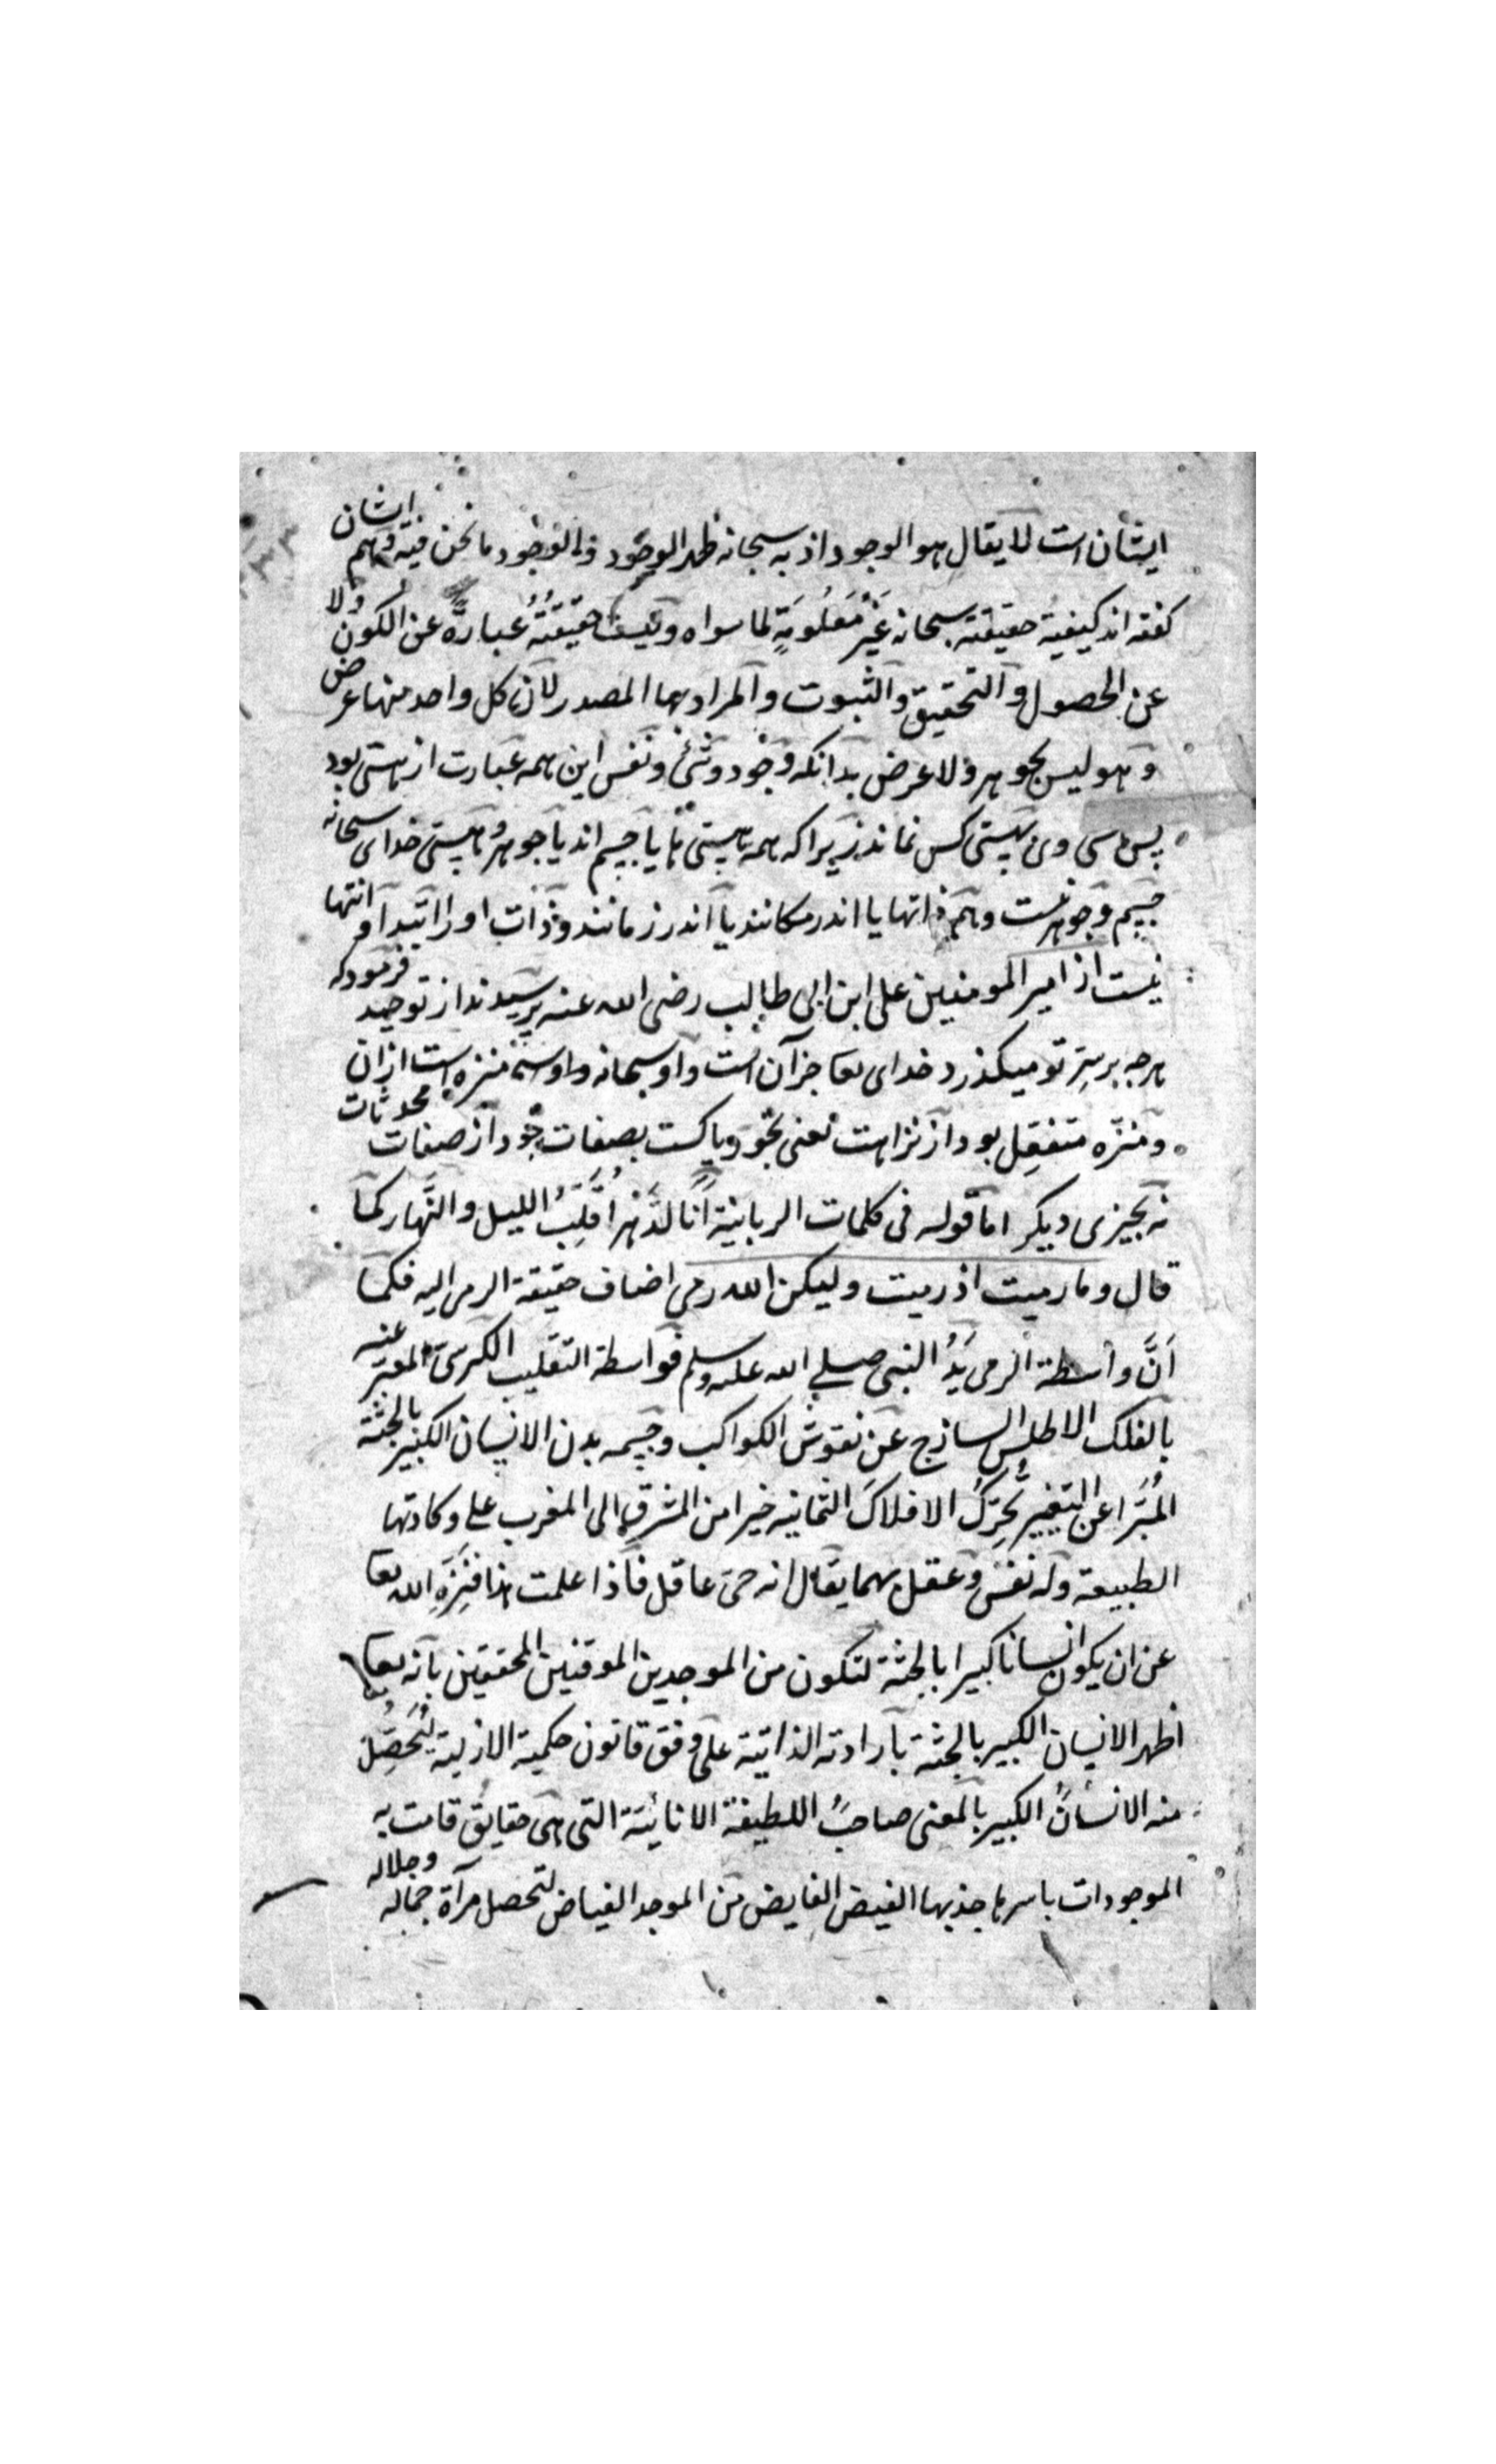 ایشان است لا یقال هو الوجود اذ به سبحانه ظهر الوجود فالوجود ما نحن فیه و هم ایشان
گفته اند کیفیة حقیقته سبحانه غَیْرُ مَعْلُومَةٍ لما سواه و لیست حقیقتُهُ عبارةً عن الکون ولا
عن الحصول و التحقیق و الثبوت و المراد بهما المصدر لان کل واحد منها عرض
و هو لیس بجوهر ولا عرض بدانکه وجود و شیٔ و نفس این همه عبارت از هستی بود
پس هستی وی بهستی کس نماند زیرا که همه هستی ها یا جسم اند یا جوهر و هستی خدای سبحانه
جسم و جوهر نیست و هم ذاتها یا اندر مکانند یا اندر زمانند و ذات او را ابتدا و انتها
نیست از امیر المومنین علی ابن ابی طالب رضی الله عنه پرسیدند از توحید فرمود که
هرچه بر سِرّ تو میکذرد خدای تعا جز آن است و او سبحانه منزه است ازان
و منزّه متفعل بود از نزاهت یعنی بخود پاکست بصفات خود از صفات محدثات
نه بچیزی دیگر اما قوله فی کلمات الربانیة اَنَا الدَّهْر اُقَلِّبُ اللیل و النَّهار کما
قال و ما رمیت اذ رمیت و لیکن الله رمی اضاف حقیقة الرمی الیه فکما
اَنَّ واسطة الرمی یَدُ النبی صلی الله علیه وسلم فواسطة التقلیب الکرسیّ المعبّر عنه
بالفلک الاطلس الساذج عن نقوش الکواکب و جسمه بدن الانسان الکبیر بالجثة
المُبَرّا عن التغییر یُحَرِّکُ الافلاکَ الثمانیه خیرا من المشرق الی المغرب علی وکادتها
الطبیعة وله نفس و عقل بهما یقال انه حیّ عاقل فاذا علمت هذا فنَزِّهِ الله تعا
عن ان یکون انسانا کبیرا بالجثة لتکون من الموحدین الموقنین المحققین بانه تعا
اظهر الانسان الکبیر بالجثة بارادته الذاتیة علی وفق قانون حکمیة الازلیة لیُحَصِّلَ
منه الانسانَ الکبیر بالمعنی صاحبَ اللطیفة الانائیّة التی هی حقایق قامت به
الموجودات باسرها جذبها الفیض الفایض من الموجد الفیاض لتحصل مرآة جماله و جلاله